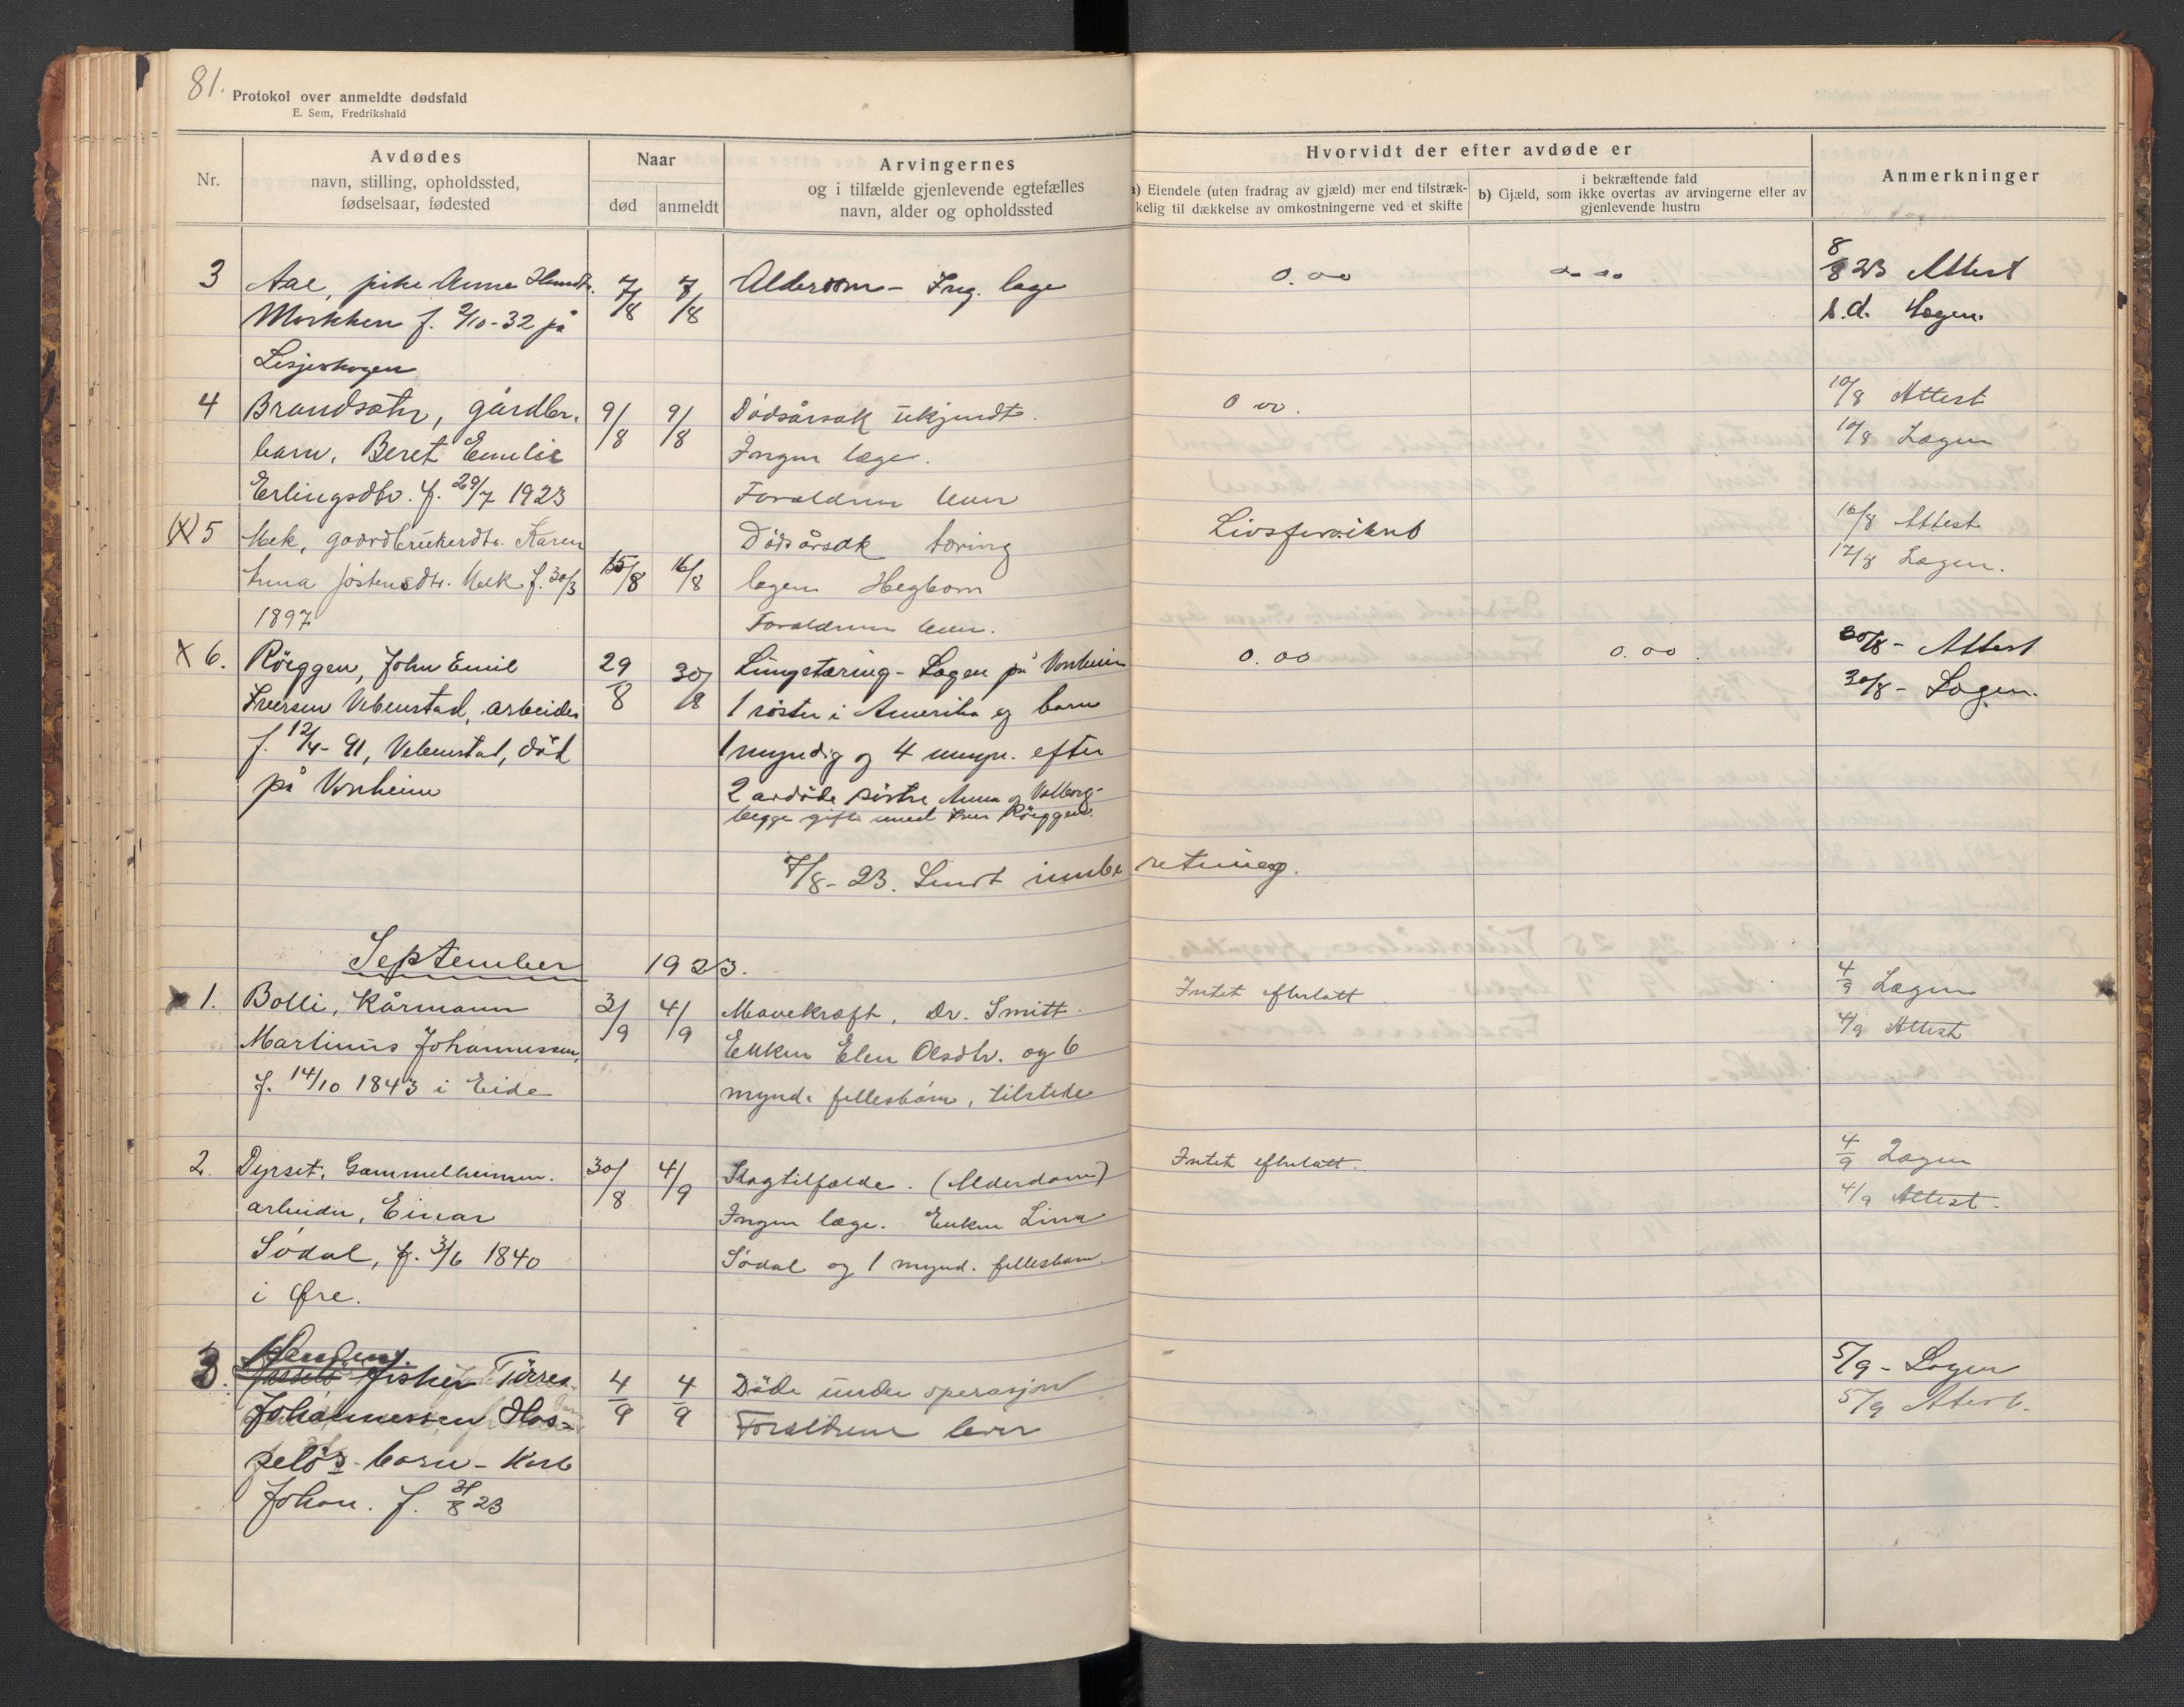 81.
Protokol over anmeldte dødsfald
E. Sem, Fredrikshald
Nr.
Avdødes
navn, stilling, opholdssted,
fødselsaar, fødested
Naar
død
anmeldt
Arvingernes
og i tilfælde gjenlevende egtefælles
navn, alder og opholdssted
Hvorvidt der efter avdøde er
a) Eiendele (uten fradrag av gjæld) mer end tilstræk-
kelig til dækkelse av omkostningerne ved et skifte
i bekræftende fald
b) Gjæld, som ikke overtas av arvingerne eller av
gjenlevende hustru
Anmerkninger
3 Aae, pike Anne 7/8 7/8 Alderdom - Ing. læge 0.00 8/8 23 Attest
Morkken f. 2/10-32 på s.d. Lægen.
Lesjeskogen
4 Brandsætr, gårdbr. 9/8 9/8 Dødsårsak ukjendt. 0 00. 10/8 Attest
barn, Beret Emelie Ingen læge. 10/8 Lægen
Erlingsdtr. f. 29/7 1923 Forældrene lever
(X) 5 Mek, gaardbrukerdtr. Karen 15/8 16/8 Dødsårsak tæring Livsforsikret 16/8 Attest
Anna Jøstensdtr. Mek f. 30/3 lægen Hegbom 17/8 Lægen.
1897 Forældrene lever.
X 6. Röeggen, John Emil 29/8 30/8 Lungetæring - Lægen på Vonheim 0.00 0.00. 30/8 - Attest
Iversen Vebenstad, arbeider 1 søster i Amerika og barn 30/8 - Lægen.
f. 12/4-91, Vebenstad, död 1 myndig og 4 umyn. efter
på Vonheim 2 avdöde söstre Anna og Valborg-
begge gifte med Iver Röeggen.
7/8-23. Sendt innberetning.
September 1923.
x 1. Bolli, Kårmann 3/9 4/9 Mavekræft, Dr. Smitt. Intet efterlatt. 4/9 Lægen
Martinus Johannessen, Enken Elen Olsdtr. og 6 4/9 Attest
f. 14/10 1843 i Eide mynd. fellesbarn, tilstede
2. Dyrset, Gammelheimen. 30/8 4/9 Slagtilfælde. (Alderdom) Intet efterlatt. 4/9 Lægen
arbeider, Einar Ingen læge. Enken Lina 4/9 Attest.
Södal, f. 3/6 1840 Södal og 1 mynd. fellesbarn.
i Øre.
3. fisker Törres 4/9 4/9 Döde under operasjon 5/9 - Lægen
Johannessen Hos- Forældrene lever 5/9 Atest.
selös barn - Karl
Johan. f. 31/8 23